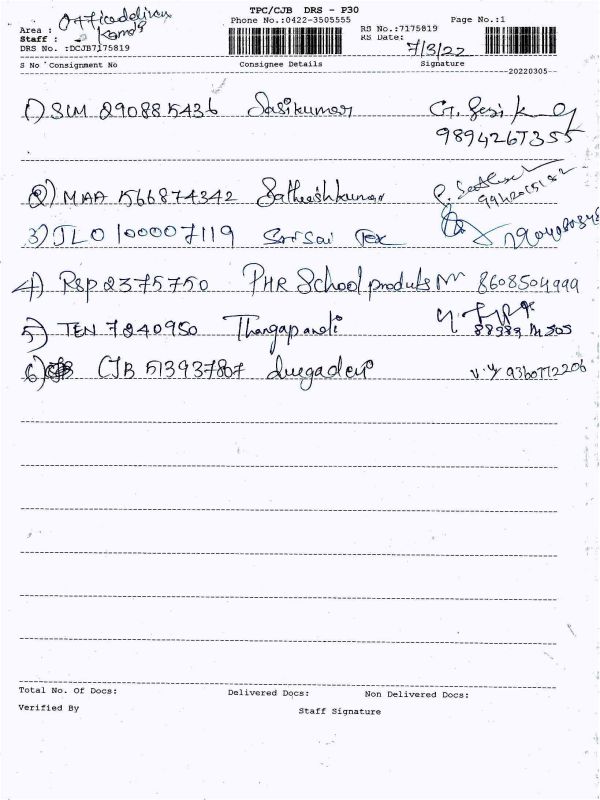 TPC/CJB DRS - P30
Phone No.:0422-3505555
Page No.:1
Area : Office delivery
Staff :
DRS No. :DCJB7175819
RS No.:7175819
RS Date: 7/3/22
S No Consignment No Consignee Details Signature
20220305
1) SLM 290885436 Sasikumar
9894267355
2) MAA 1566874342 Satheeshkumar
3) JLO 100007119 Sri Sai Tex
4) RSP 2375750 PHR School produts 8608504999
5) TEN 7240950 Thangapandi
6) CJB 513937807 durgadevi 9360772206
Total No. Of Docs: Delivered Docs: Non Delivered Docs:
Verified By Staff Signature